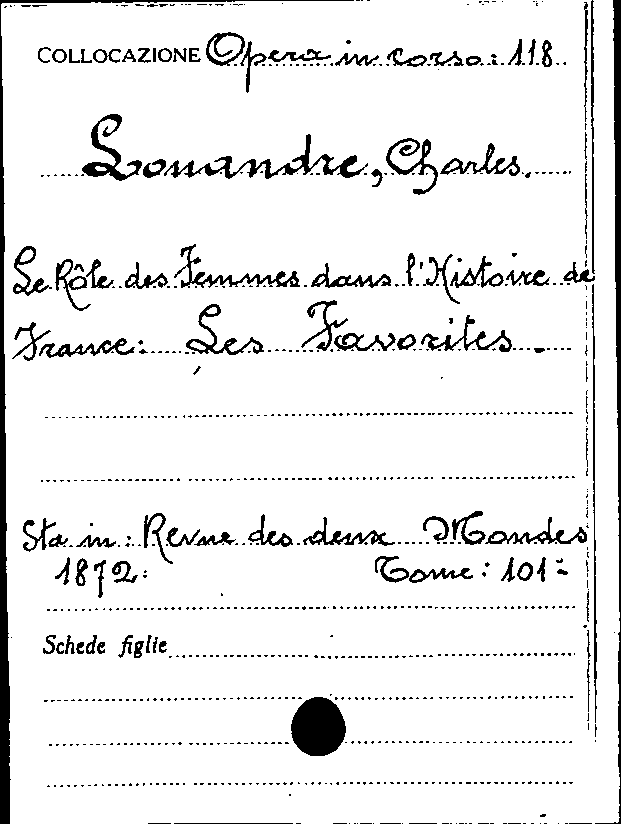 COLLOCAZIONE Opera in corso: 118
Louandre, Charles.
Le Rôle des Femmes dans l'Histoire de
France: Les Favorites.
Sta in: Revue des deux Mondes
1872. Tome: 101-
Schede figlie